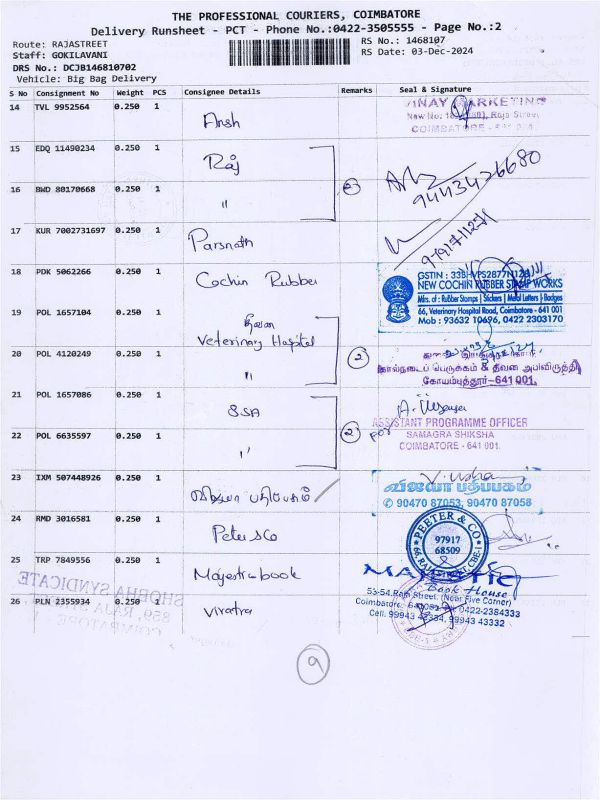 THE PROFESSIONAL COURIERS, COIMBATORE
Delivery Runsheet - PCT - Phone No.:0422-3505555 - Page No.:2
Route: RAJASTREET
RS No.: 1468107
Staff: GOKILAVANI
RS Date: 03-Dec-2024
DRS No.: DCJB146810702
Vehicle: Big Bag Delivery
S No Consignment No Weight PCS Consignee Details Remarks Seal & Signature
14 TVL 9952564 0.250 1 Ansh
VINAY MARKETING
Raja Street
COIMBATORE - 641 001
15 EDQ 11490234 0.250 1 Raj
16 BWD 80170668 0.250 1 "
2
9443426680
17 KUR 7002731697 0.250 1 Parsnath
18 PDK 5062266 0.250 1 Cochin Rubber
NEW COCHIN RUBBER STAMP WORKS
Mfrs. of : Rubber Stamps | Stickers | Metal Letters | Badges
66, Veterinary Hospital Road, Coimbatore - 641 001
Mob : 93632 10696, 0422 2303170
19 POL 1657104 0.250 1 தீவன
Veterinary Hospital
20 POL 4120249 0.250 1 "
2
கால்நடைப் பெருக்கம் & தீவன அபிவிருத்தி
கோயம்புத்தூர்-641 001.
21 POL 1657086 0.250 1 SSA
22 POL 6635597 0.250 1 "
2
For
ASSISTANT PROGRAMME OFFICER
SAMAGRA SHIKSHA
COIMBATORE - 641 001.
23 IXM 507448926 0.250 1 விஜயா பதிப்பகம்
V. Usha
விஜயா பதிப்பகம்
✆ 90470 87053, 90470 87058
24 RMD 3016581 0.250 1 Peter &Co
PEETER & CO
97917
68509
25 TRP 7849556 0.250 1 Majestic book
MAJESTIC
Book House
53-54, Raja Street, (Near Five Corner)
Coimbatore- 641 001. Ph: 0422-2384333
Cell: 99943 43334, 99943 43332
26 PLN 2355934 0.250 1 Viratra
SHOBHA SYNDICATE
COIMBATORE -
9